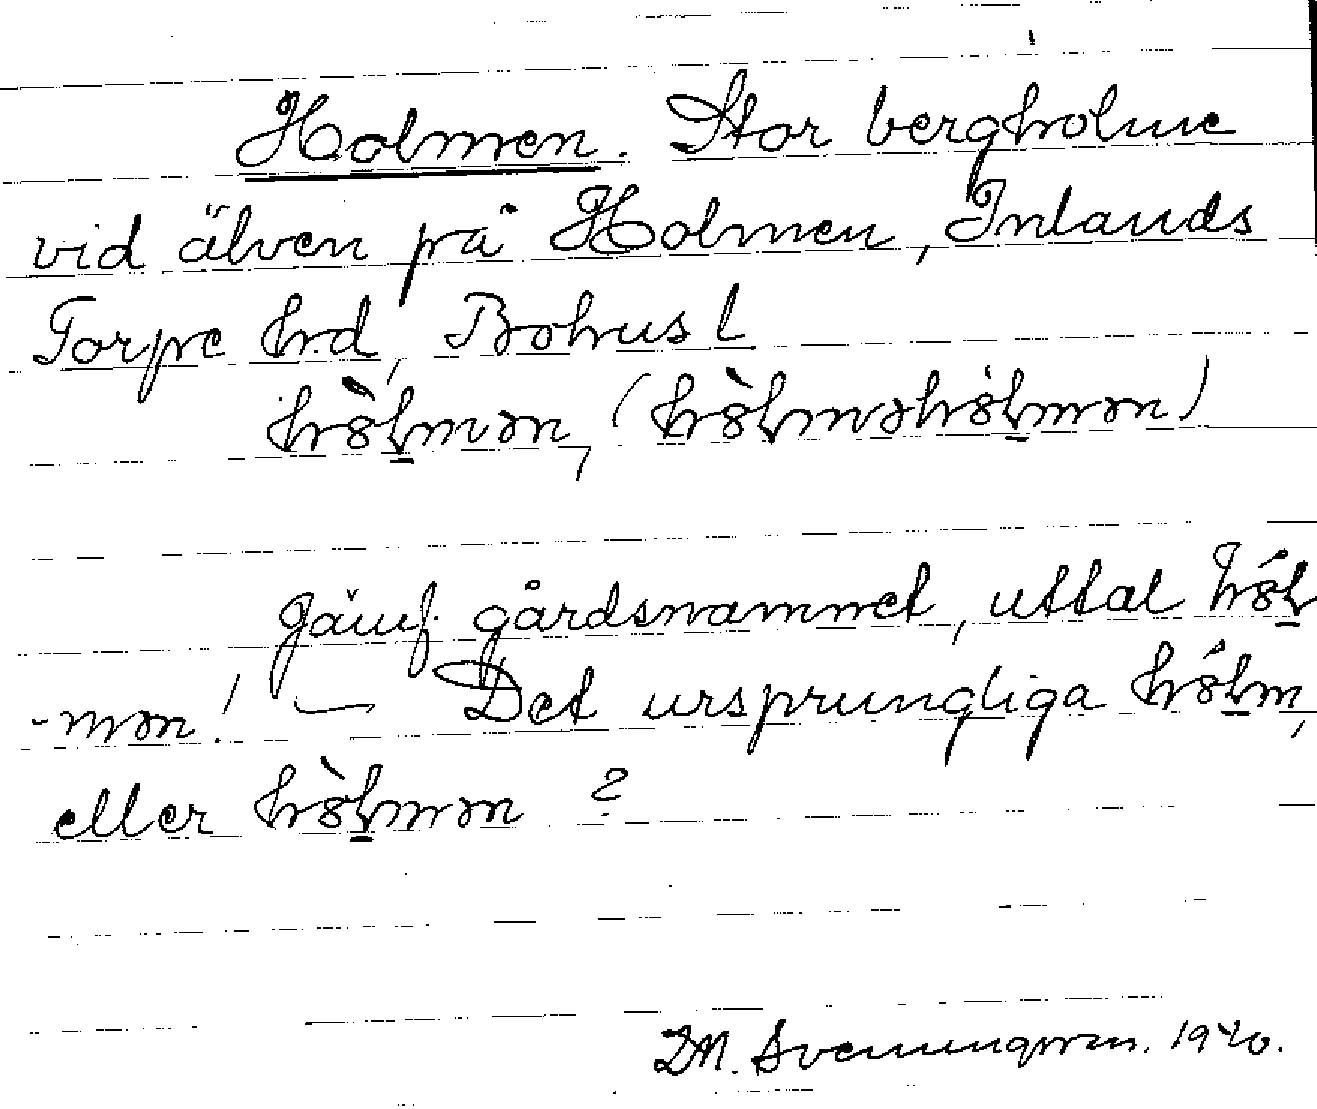 Holmen. Stor bergholme
vid älven på Holmen, Inlands
Torpe hrd, Bohusl
hòlmən, (hòlməhòlmən)
Jämf. gårdsnamnet, uttal hól
-mən! — Det ursprungliga hólm,
eller hòlmən?
1940.